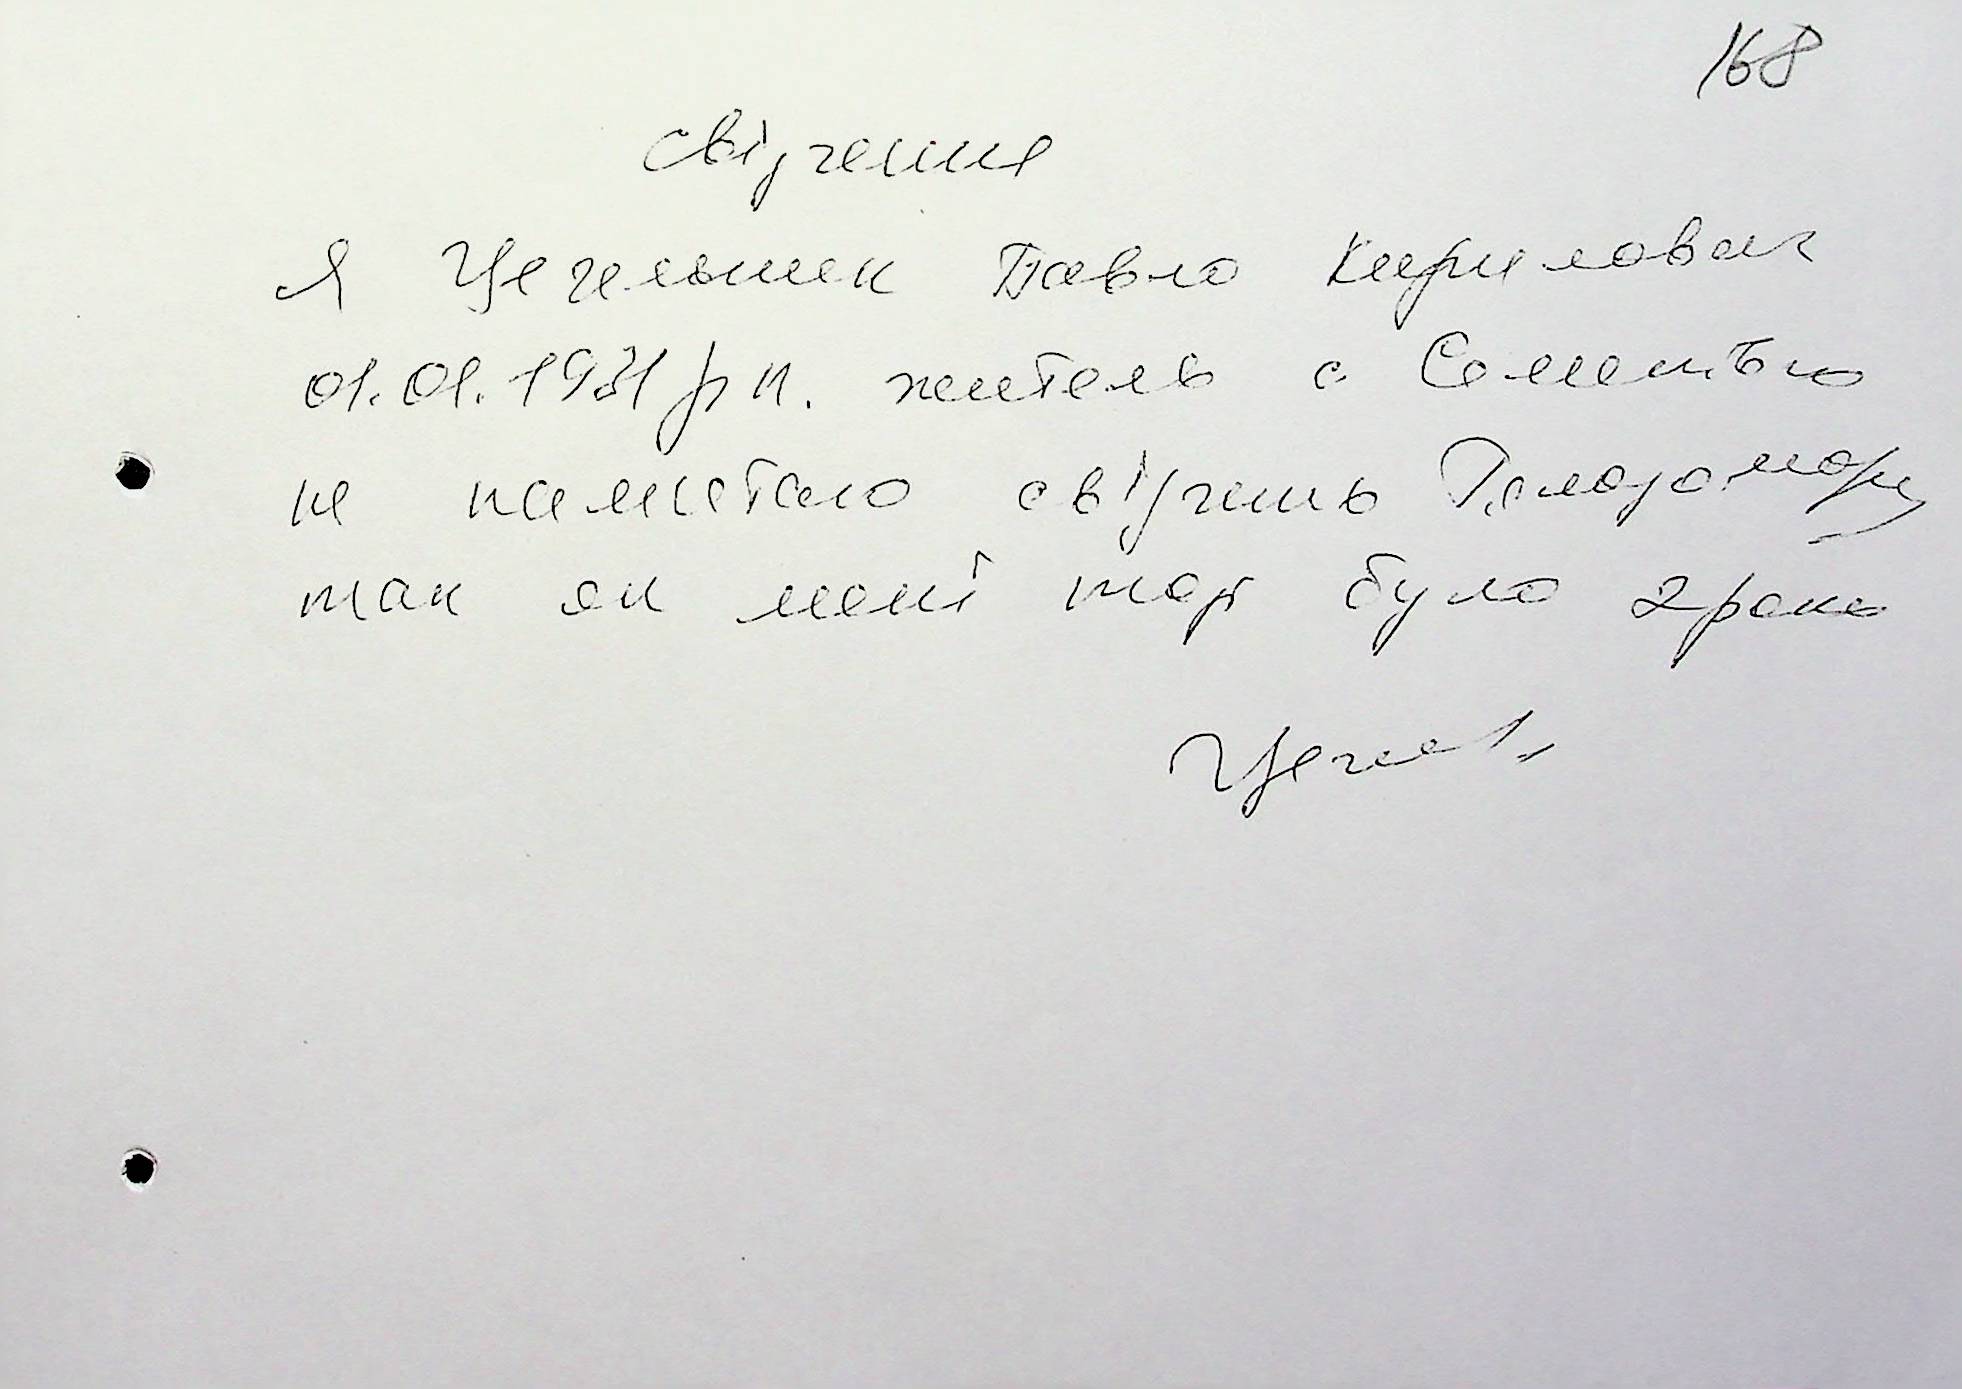 168
свідчення
Я Цегельник Павло Кирилович
01.01.1931 р н. житель с
не памєтаю свідчень Голодомору
так як мені тод було 2 роки